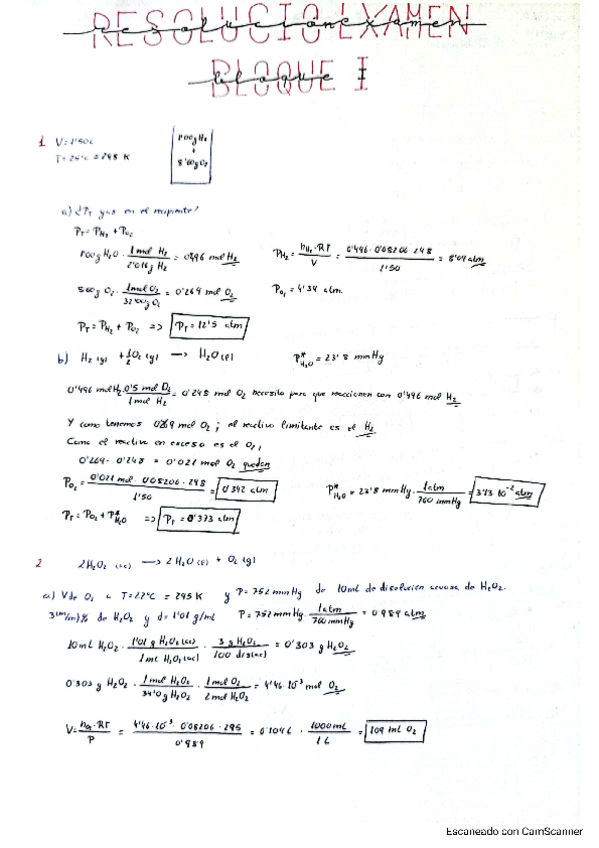 RESOLUCIÓ EXAMEN
resolución examen
BLOQUE I
bloque I
1 V= 1'50L
T= 25°C = 298 K
1'00g H₂
+
8'60g O₂
a) ¿PT gas en el recipiente?
PT = PH₂ + PO₂
1'00g H₂O · 1 mol H₂ / 2'016g H₂ = 0'496 mol H₂
PH₂ = nH₂·RT / V = 0'496 · 0'08206 · 298 / 1'50 = 8'09 atm
8'60g O₂ · 1 mol O₂ / 32'00g O₂ = 0'269 mol O₂
PO₂ = 4'39 atm
PT = PH₂ + PO₂ => PT = 12'5 atm
b) H₂ (g) + 1/2 O₂ (g) → H₂O (l)
P*H₂O = 23'8 mmHg
0'496 mol H₂ · 0'5 mol O₂ / 1 mol H₂ = 0'248 mol O₂ necesito para que reaccionen con 0'496 mol H₂
Y como tenemos 0'269 mol O₂; el reactivo limitante es el H₂
Como el reactivo en exceso es el O₂,
0'269 - 0'248 = 0'021 mol O₂ quedan
PO₂ = 0'021 mol · 0'08206 · 298 / 1'50 = 0'342 atm
P*H₂O = 23'8 mmHg · 1 atm / 760 mmHg = 3'13·10⁻² atm
PT = PO₂ + P*H₂O => PT = 0'373 atm
2 2H₂O₂ (ac) → 2 H₂O (l) + O₂ (g)
a) V de O₂ a T=22°C = 295 K y P= 752 mmHg de 10ml de disolución acuosa de H₂O₂.
3(m/m)% de H₂O₂ y d= 1'01 g/ml P= 752 mmHg · 1 atm / 760 mmHg = 0'989 atm
10mL H₂O₂ · 1'01 g H₂O₂ (ac) / 1 mL H₂O₂ (ac) · 3 g H₂O₂ / 100 dis(ac) = 0'303 g H₂O₂
0'303 g H₂O₂ · 1 mol H₂O₂ / 34'0g H₂O₂ · 1 mol O₂ / 2 mol H₂O₂ = 4'46·10⁻³ mol O₂
V= nG·RT / P = 4'46·10⁻³ · 0'08206 · 295 / 0'989 = 0'109L · 1000mL / 1L = 109 mL O₂
Escaneado con CamScanner